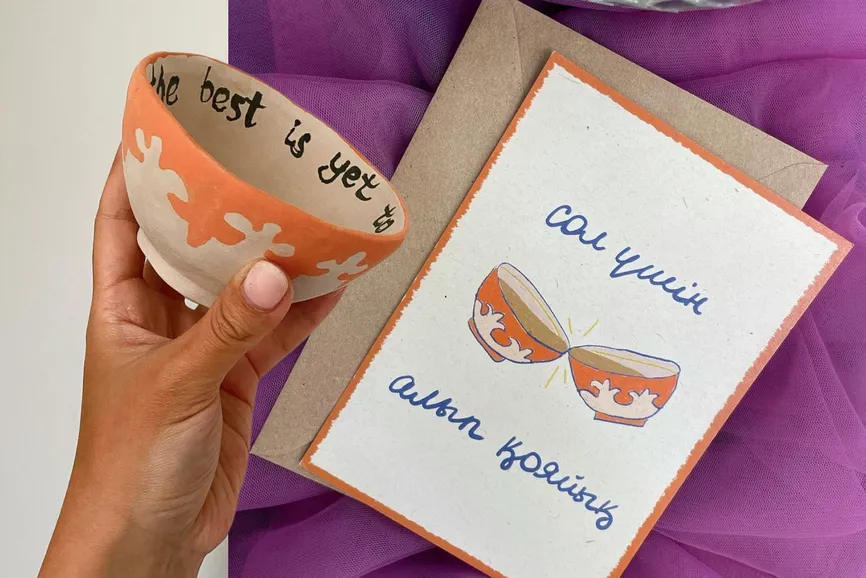 the best is yet to
сол үшін
алып қояйық